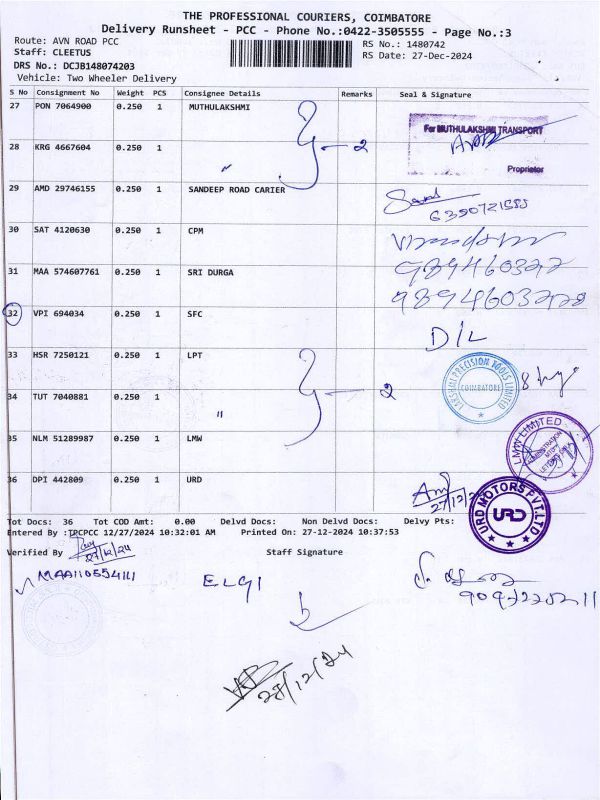 THE PROFESSIONAL COURIERS, COIMBATORE
Delivery Runsheet - PCC - Phone No.:0422-3505555 - Page No.:3
Route: AVN ROAD PCC
RS No.: 1480742
Staff: CLEETUS
RS Date: 27-Dec-2024
DRS No.: DCJB148074203
Vehicle: Two Wheeler Delivery
S No Consignment No Weight PCS Consignee Details Remarks Seal & Signature
27 PON 7064900 0.250 1 MUTHULAKSHMI
For MUTHULAKSHMI TRANSPORT
2
28 KRG 4667604 0.250 1 "
Proprietor
29 AMD 29746155 0.250 1 SANDEEP ROAD CARIER
30 SAT 4120630 0.250 1 CPM
31 MAA 574607761 0.250 1 SRI DURGA
32 VPI 694034 0.250 1 SFC
D/L
33 HSR 7250121 0.250 1 LPT
PRECISION TOOLS LIMITED
COIMBATORE
2
34 TUT 7040881 0.250 1 "
35 NLM 51289987 0.250 1 LMW
LMW LIMITED
36 DPI 442809 0.250 1 URD
27/12/2
URD MOTORS PVT.LTD
URD
Tot Docs: 36 Tot COD Amt: 0.00 Delvd Docs: Non Delvd Docs: Delvy Pts:
Entered By :TPCPCC 12/27/2024 10:32:01 AM Printed On: 27-12-2024 10:37:53
Verified By
27/12/24
Staff Signature
MAA110554141
ELGI
28/12/24